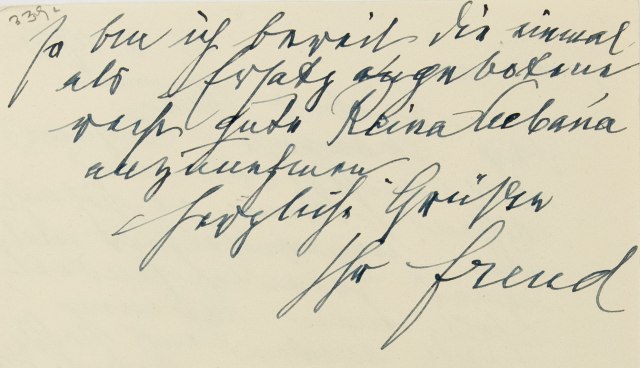 339.
so bin ich bereit die einmal
als Ersatz angebotene
recht gute Reina Cubana
anzunehmen
Herzliche Grüße
Ihr Freud